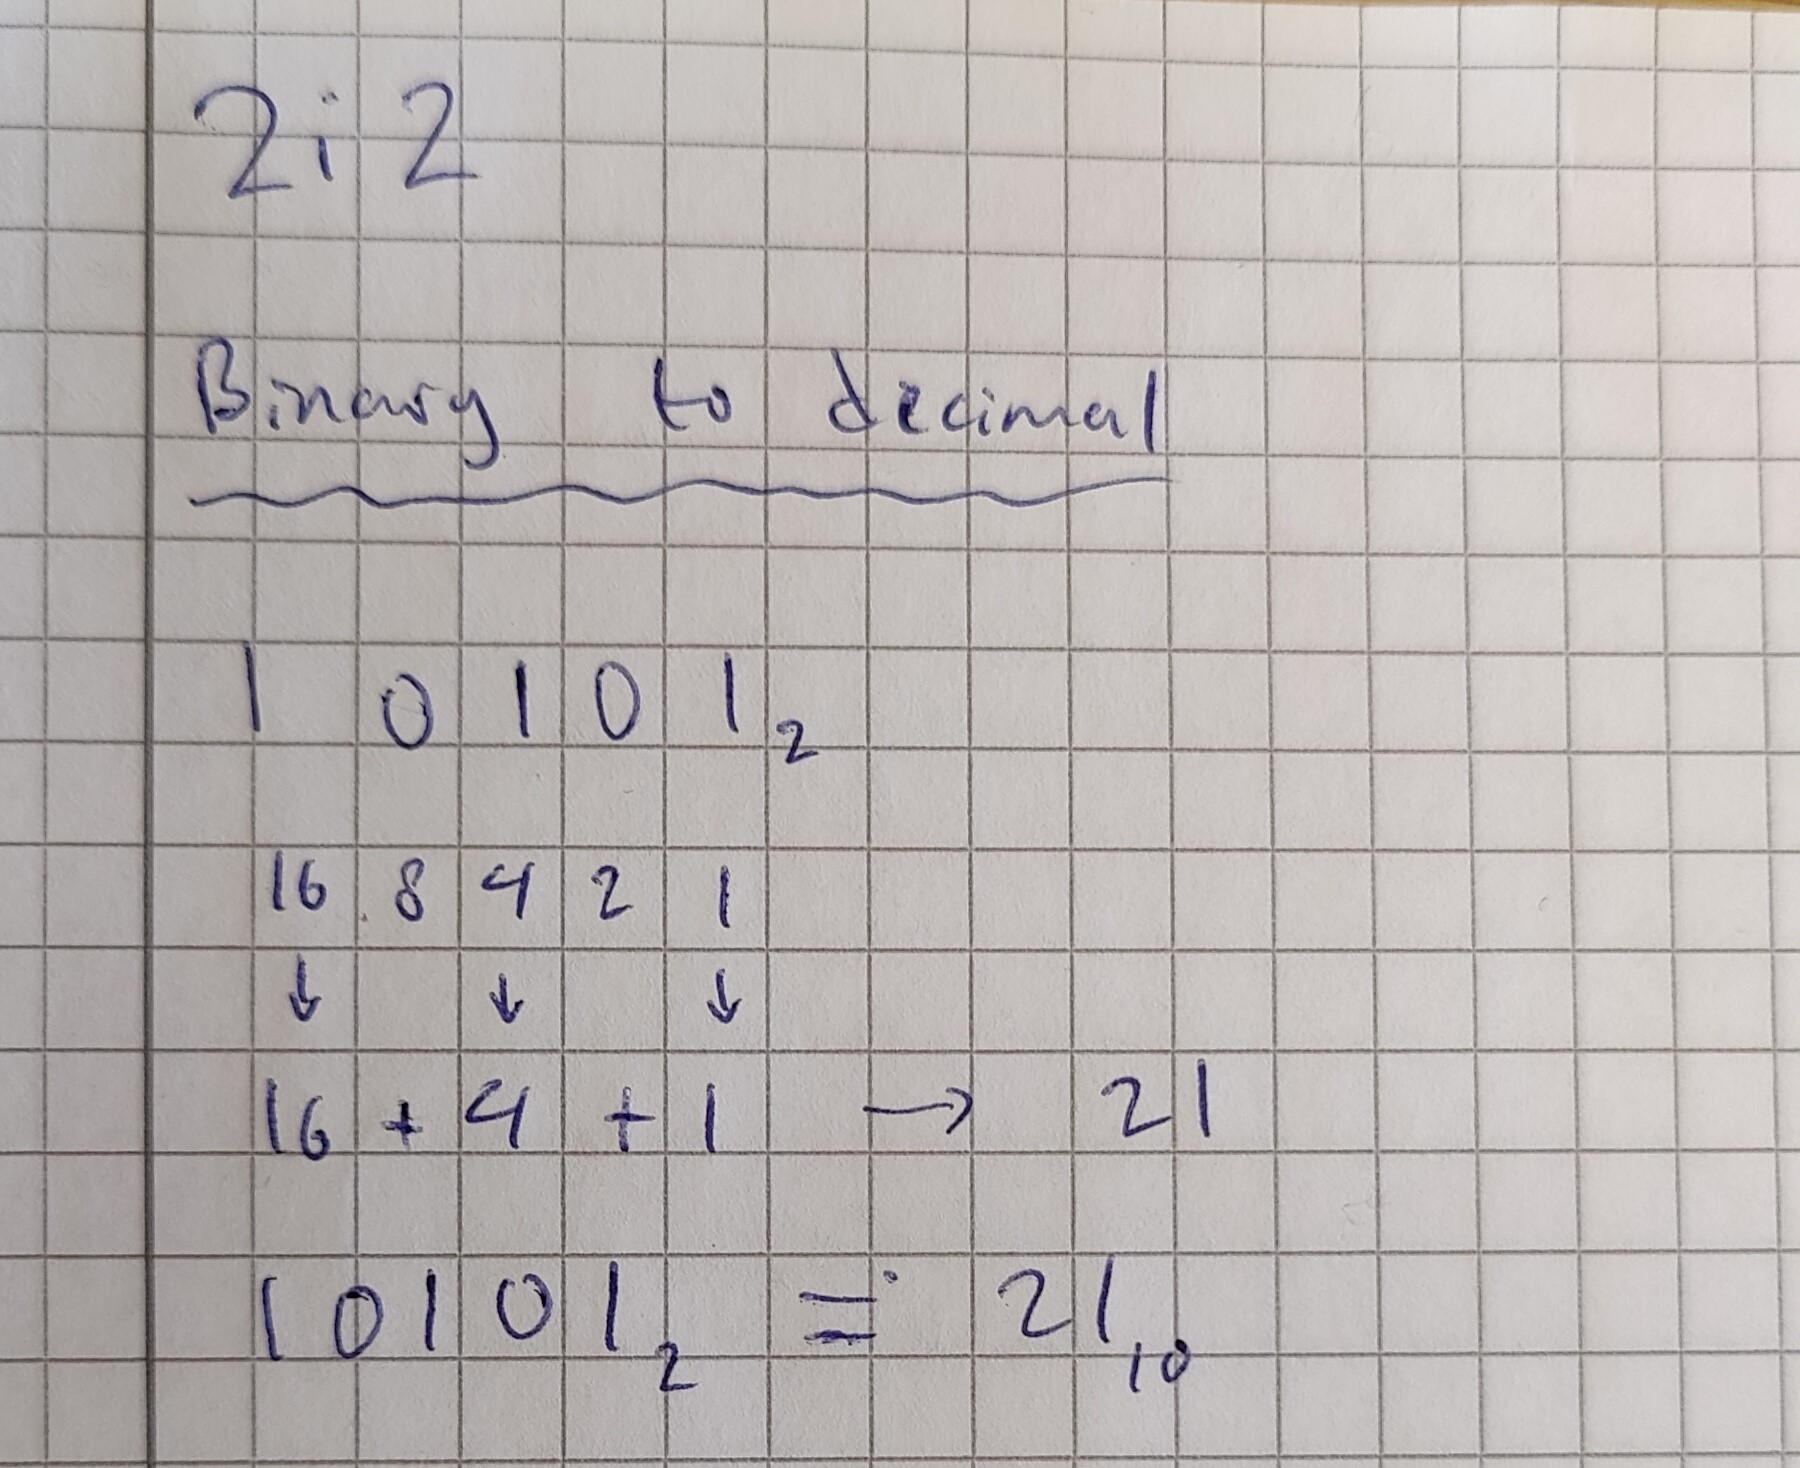 2i2
Binary to decimal
1 0 1 0 1₂
16 8 4 2 1
↓ ↓ ↓
16 + 4 + 1 → 21
10101₂ = 21₁₀